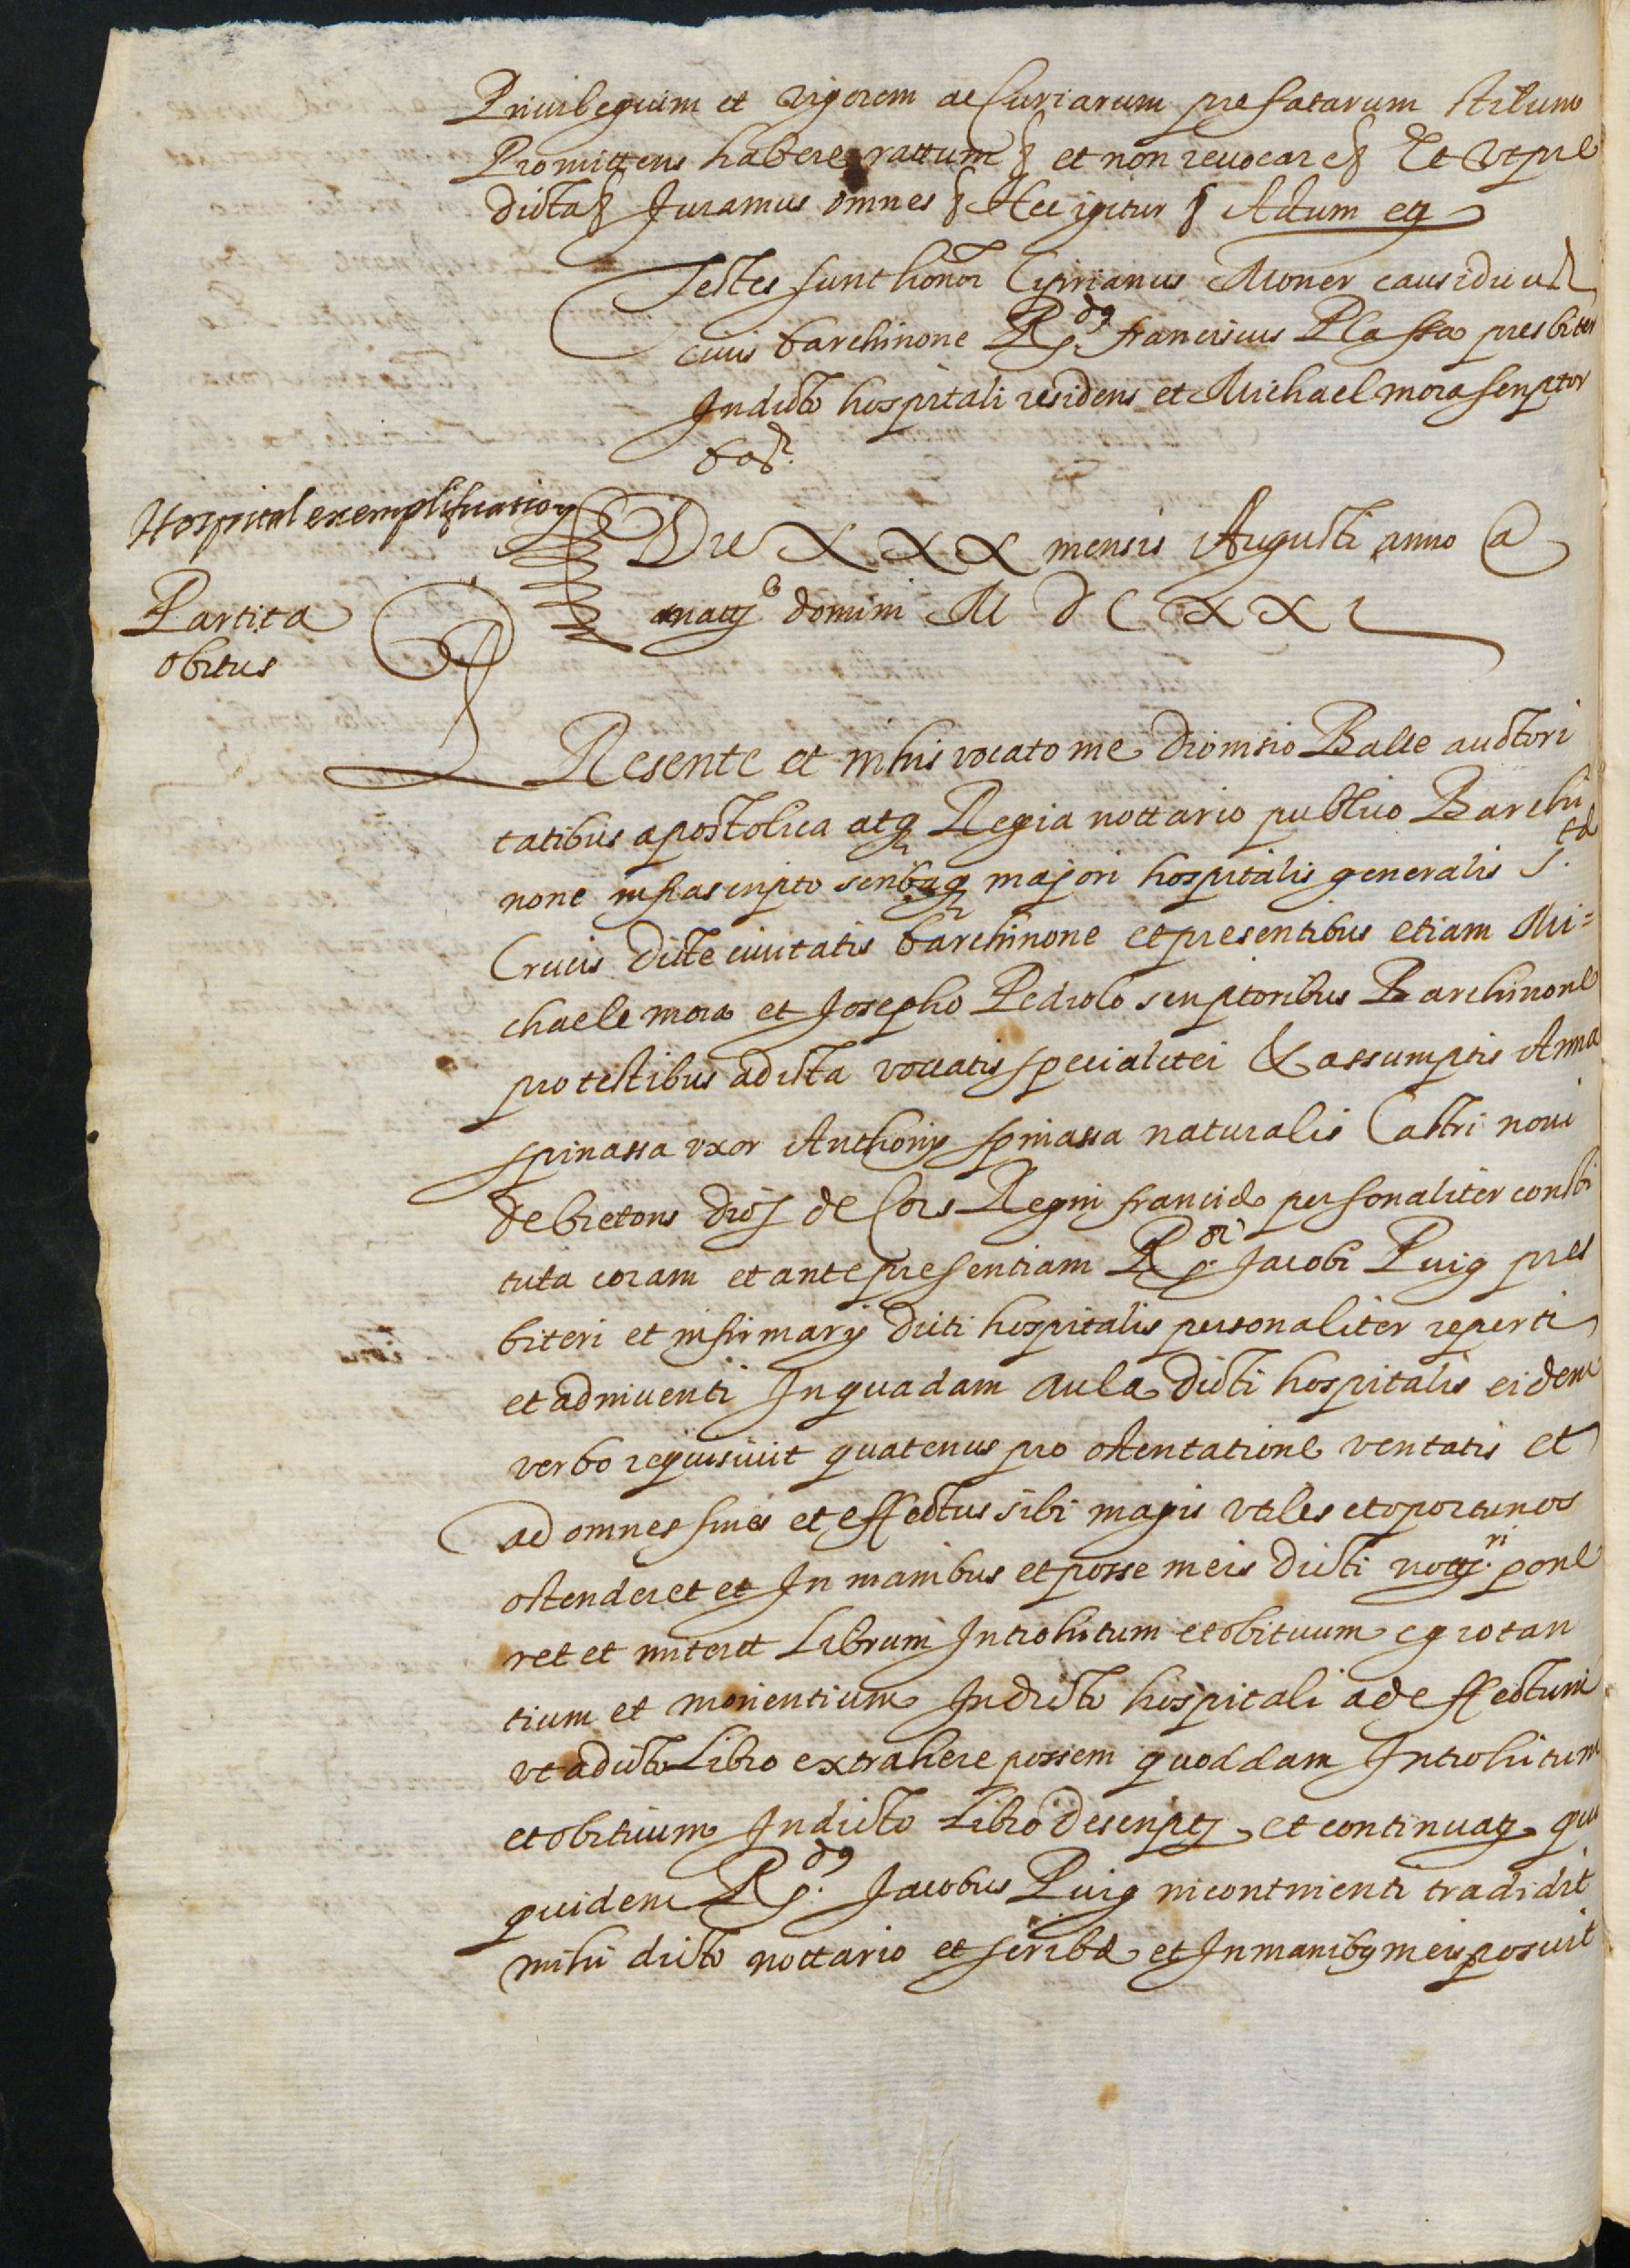 Privilegium et vigorem ac Curiarum prefatarum stilum
Promittens habere rattum & et non revocare & Et ut pre
dicta & Juramus omnes & Hec igitur & Actum eq
Testes sunt honor Ciprianus Moner causidicus
civis barchinone Rs. dq franciscus Plassa presbiter
In dicto hospitali residens et Michael mora scriptor
bar.
Hospital exemplificatio
Partita
obitus
Die XXX mensis Augusti anno a
natte domini M D C XX I
Presente et in his vocato me dionisio Balle auctori
tatibus apostolica atq Regia nottario publico Barchi
none infrascripto scribaq majori hospitalis generalis S. te
Crucis dicte civitatis barchinone et presentibus etiam Mi=
chaele mora et Josepho Pedrolo scriptoribus Barchinone
pro testibus ad ista vocatis specialiter & assumptis Anna
spinassa uxor Anthonij spinassa naturalis Castri novi
de bretons dios de Cors Regni francie personaliter consti
tuta coram et ante presentiam Rs. di Jacobi Puig pres
biteri et infirmarij dicti hospitalis personaliter reperti
et adinventi In quadam aula dicti hospitalis eidem
verbo requisivit quatenus pro ostentatione veritatis et
ad omnes fines et effectus sibi magis utiles et oportunos
ostenderet et In manibus et posse meis dicti notj. ri pone
ret et miteret Librum Introhitum et obituum egrotan
tium et morientium In dicto hospitali ad effectum
ut a dicto Libro extrahere possem quoddam Introhitum
et obitium In dicto Libro descriptj et continuatj qui
quidem Rs. dq Jacobus Puig incontinenti tradidit
mihi dicto nottario et scribe et In manibq meis posuit